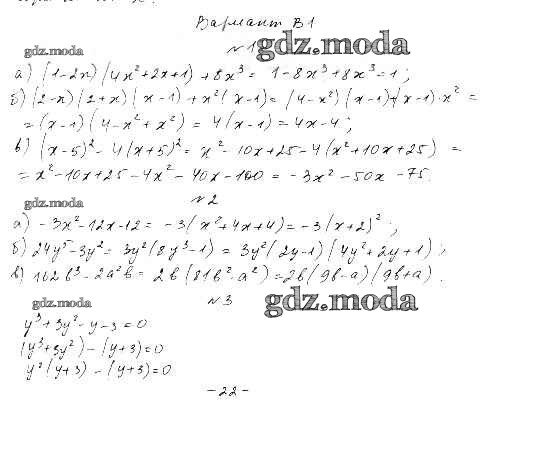 Вариант В1
gdz.moda
№1 gdz.moda
а) (1-2x)(4x²+2x+1)+8x³= 1-8x³+8x³=1;
б) (2-x)(2+x)(x-1)+x²(x-1)=(4-x²)(x-1)+(x-1)·x²=
=(x-1)(4-x²+x²)=4(x-1)=4x-4;
в) (x-5)²-4(x+5)²=x²-10x+25-4(x²+10x+25)=
=x²-10x+25-4x²-40x-100=-3x²-50x-75.
gdz.moda №2
а) -3x²-12x-12=-3(x²+4x+4)=-3(x+2)²;
б) 24y⁵-3y²=3y²(8y³-1)=3y²(2y-1)(4y²+2y+1);
в) 162b³-2a²b=2b(81b²-a²)=2b(9b-a)(9b+a).
gdz.moda №3 gdz.moda
y³+3y²-y-3=0
(y³+3y²)-(y+3)=0
y²(y+3)-(y+3)=0
-22-